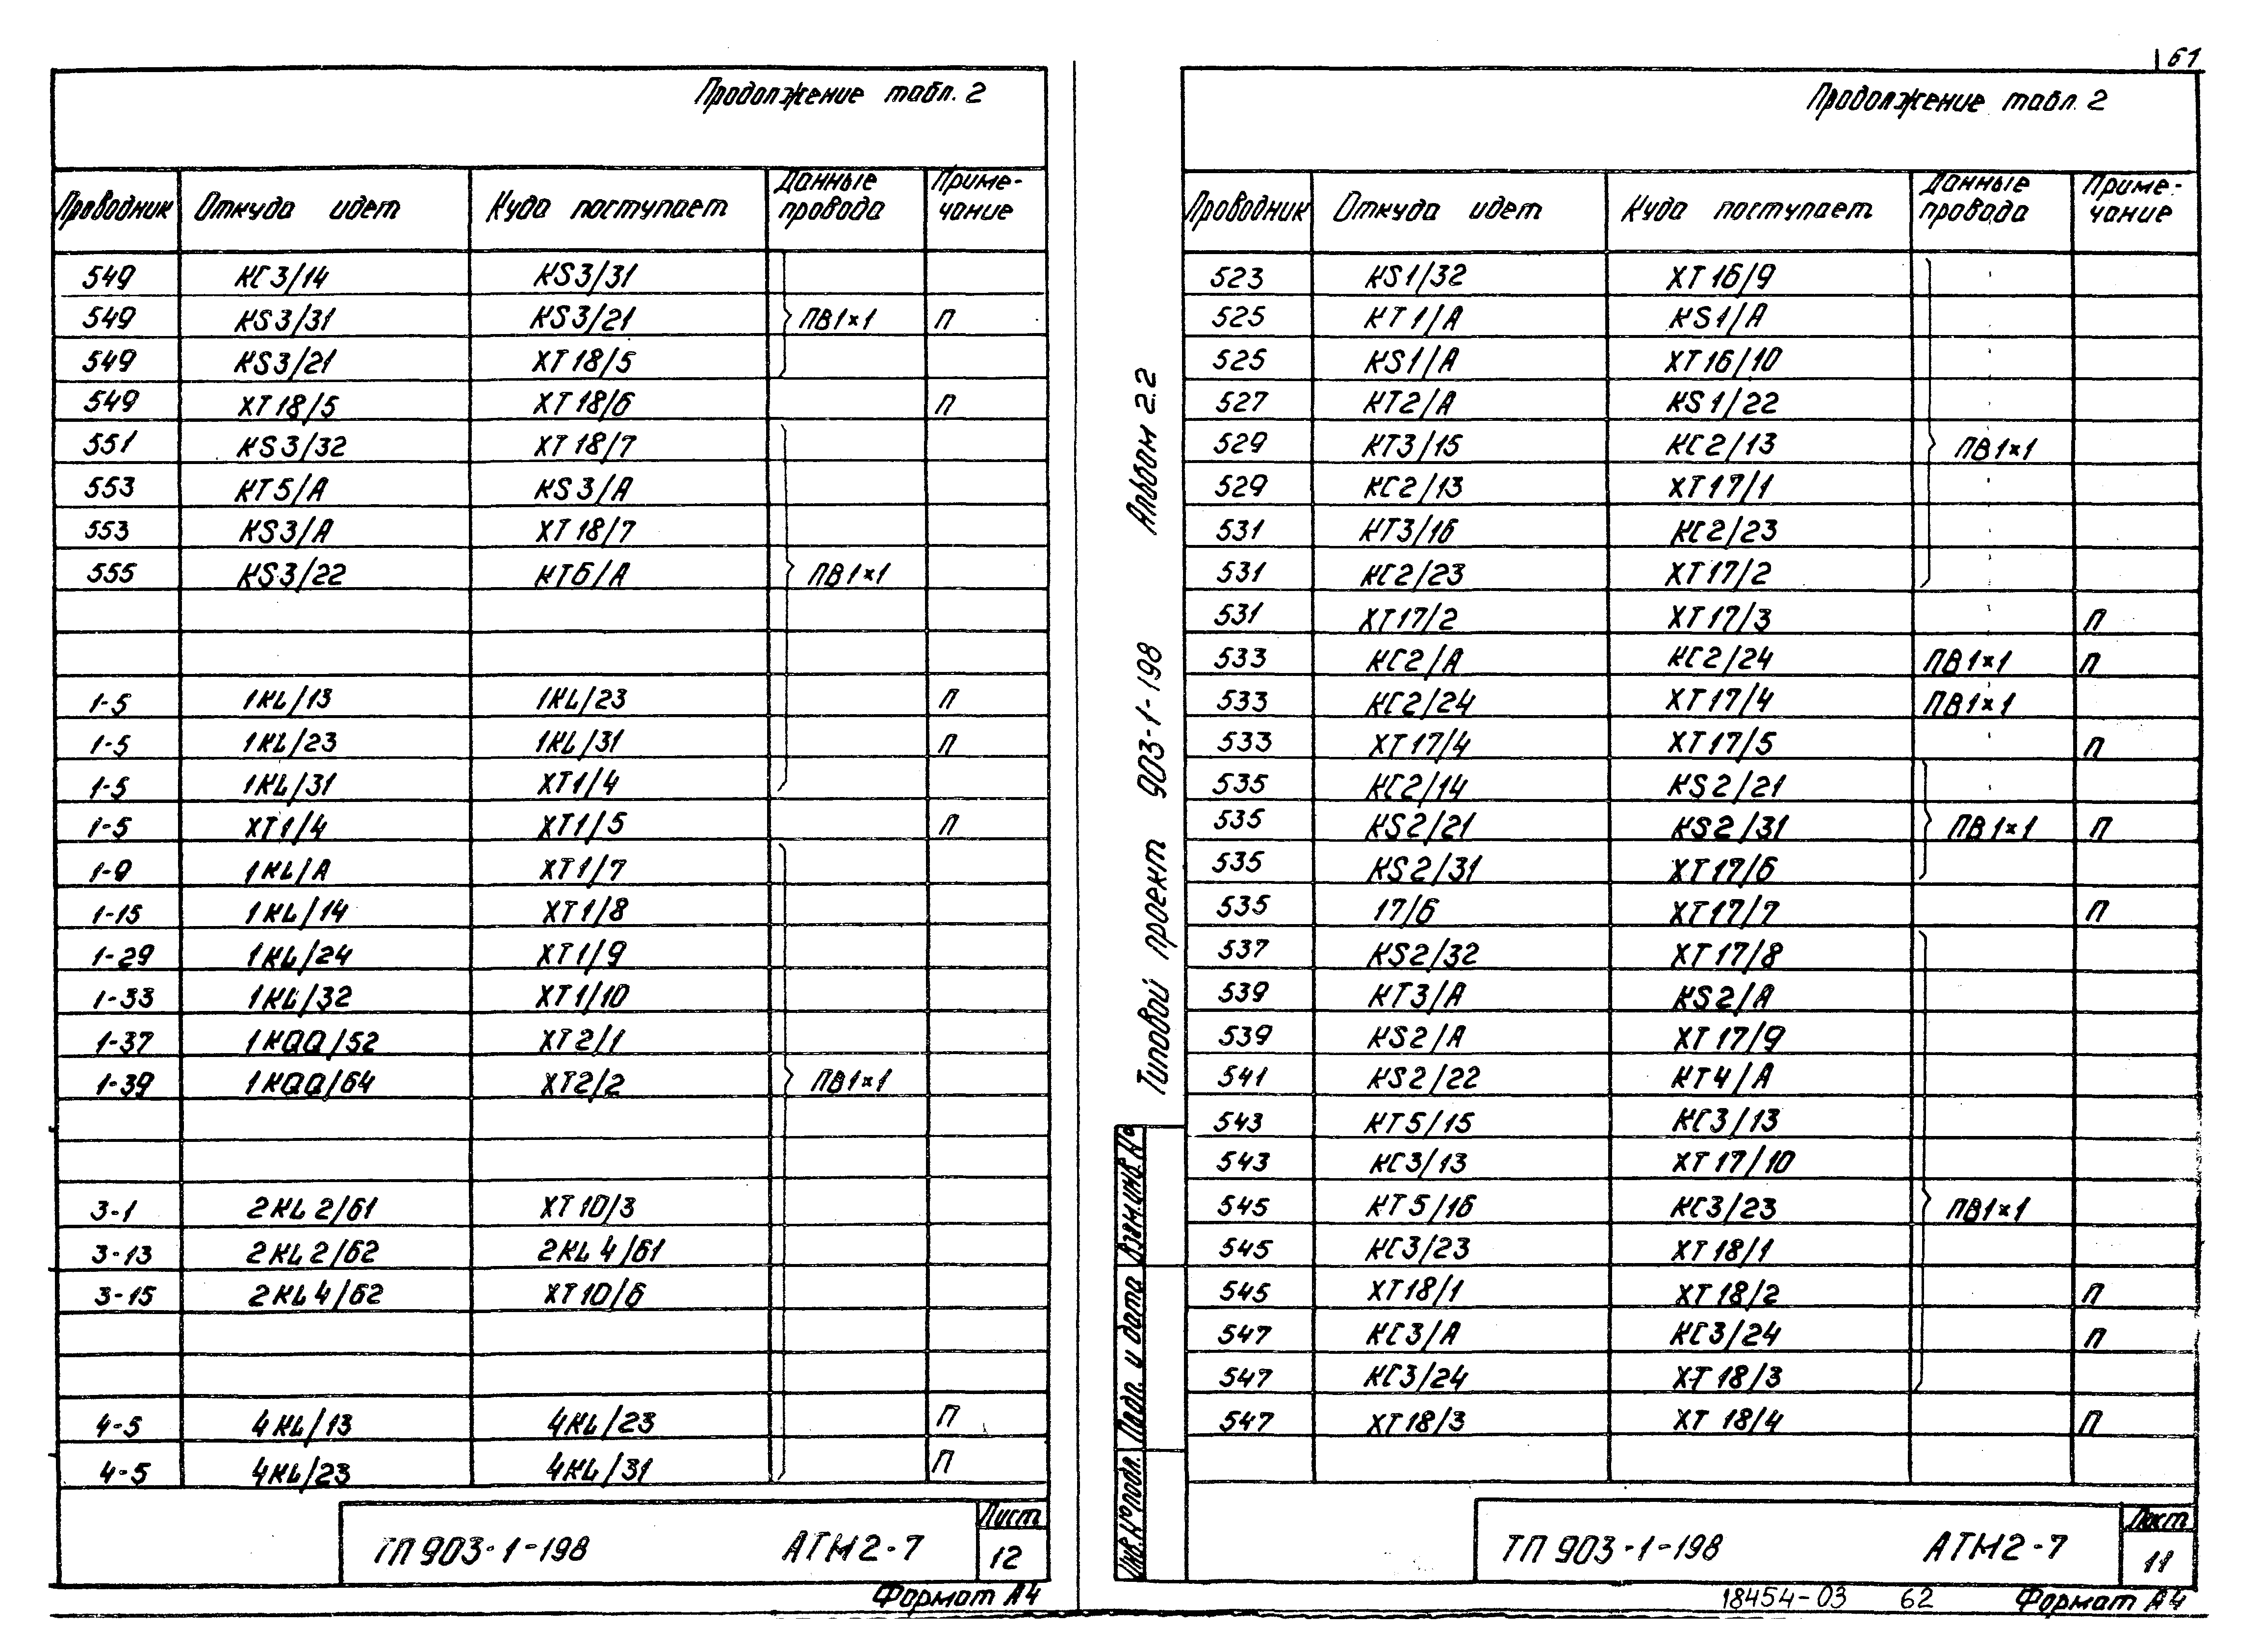 61
Продолжение табл. 2
Проводник Откуда идет Куда поступает Данные провода Приме-чание
549 КС3/14 KS3/31
549 KS3/31 KS3/21 ПВ1×1 П
549 KS3/21 XT18/5
549 XT18/5 XT18/6 П
551 KS3/32 XT18/7
553 KT5/A KS3/A
553 KS3/A XT18/7
555 KS3/22 KT6/A ПВ1×1
1-5 1KL/13 1KL/23 П
1-5 1KL/23 1KL/31 П
1-5 1KL/31 XT1/4
1-5 XT1/4 XT1/5 П
1-9 1KL/A XT1/7
1-15 1KL/14 XT1/8
1-29 1KL/24 XT1/9
1-33 1KL/32 XT1/10
1-37 1KQQ/52 XT2/1
1-39 1KQQ/64 XT2/2 ПВ1×1
3-1 2KL2/61 XT10/3
3-13 2KL2/62 2KL4/61
3-15 2KL4/62 XT10/6
4-5 4KL/13 4KL/23 П
4-5 4KL/23 4KL/31 П
ТП 903-1-198 АТМ2-7 Лист 12
Формат А4
Продолжение табл. 2
Проводник Откуда идет Куда поступает Данные провода Приме-чание
523 KS1/32 XT16/9
525 KT1/A KS1/A
525 KS1/A XT16/10
527 KT2/A KS1/22
529 KT3/15 КС2/13 ПВ1×1
529 КС2/13 XT17/1
531 KT3/16 КС2/23
531 КС2/23 XT17/2
531 XT17/2 XT17/3 П
533 КС2/A КС2/24 ПВ1×1 П
533 КС2/24 XT17/4 ПВ1×1
533 XT17/4 XT17/5 П
535 КС2/14 KS2/21
535 KS2/21 KS2/31 ПВ1×1 П
535 KS2/31 XT17/6
535 17/6 XT17/7 П
537 KS2/32 XT17/8
539 KT3/A KS2/A
539 KS2/A XT17/9
541 KS2/22 KT4/A
543 KT5/15 КС3/13
543 КС3/13 XT17/10
545 KT5/16 КС3/23 ПВ1×1
545 КС3/23 XT18/1
545 XT18/1 XT18/2 П
547 КС3/A КС3/24 П
547 КС3/24 XT18/3
547 XT18/3 XT 18/4 П
ТП 903-1-198 АТМ2-7 Лист 11
18454-03 62 Формат А4
Типовой проект 903-1-198 Альбом 2.2
Инв.№подл. Подп. и дата Взам.инв.№